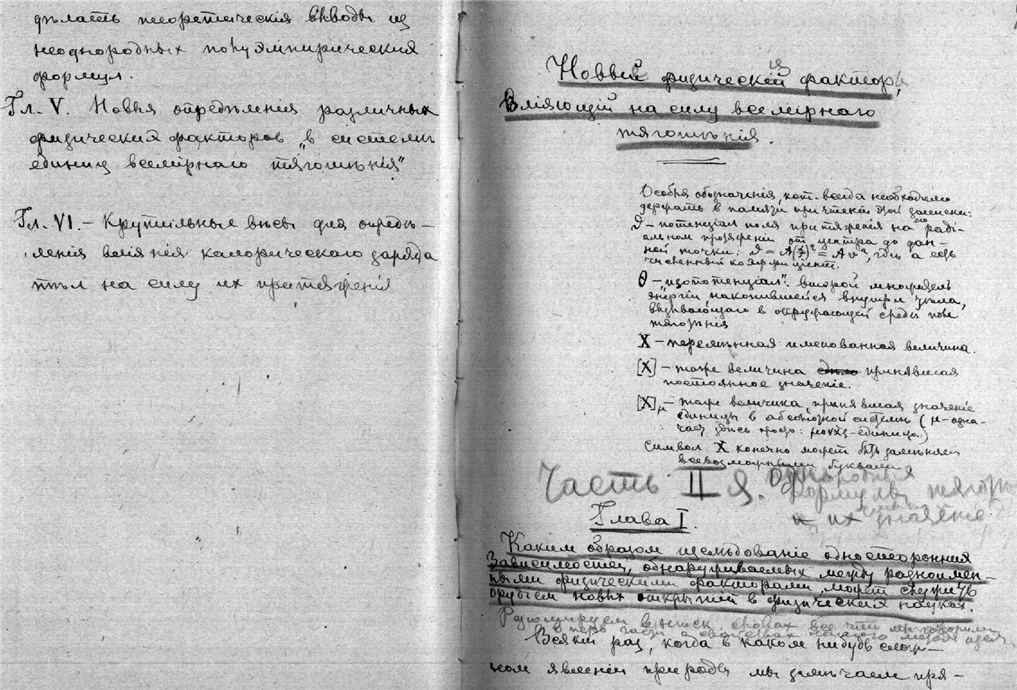 дѣлать теоретическія выводы из
неоднородных полуэмпирических
формул.
Гл. V. Новыя опредѣленія различных
физических факторов „в системѣ
единиц всемірнаго тяготѣнія"
Гл. VI. – Крутильные вѣсы для опредѣ-
ленія вліянія калорическаго заряда
тѣл на силу их притяженія
Новый физический фактор,
вліяющій на силу всемірнаго
тяготѣнія.
Особыя обозначенія, кот. всегда необходимо
держать в памяти при чтеніи этой записки:
– потенціал поля притяженія на его раді-
альном протяженіи от центра до дан-
ной точки:
численный коэффиціент.
θ – "изопотенціал": второй множитель
энергіи накопившейся внутри тѣла,
вызывающаго в окружающей среде поле
тяготѣнія
X – перемѣнная именованная величина.
[X] – тоже величина принявшая
постоянное значеніе.
[X]μ – тоже величина, принявшая значеніе
единицы в абсолютной системѣ (μ – озна-
чает здѣсь просто: единица.)
Символ X конечно может быть замѣняем
всевозможными буквами
Часть II я. Однородныя
формулы тягот.
и их значеніе
Глава I.
Каким образом изслѣдованіе односторонния
зависимостей, обнаруживаемых между разноимен-
ными физическими факторами, может служить
орудіем новых открытий в физических науках.
в нѣск. словах все что мы говорили
в перв. части о свойствах
Всякий раз, когда в каком нибудь слож-
ном явленіи природы мы замѣчаем пря-